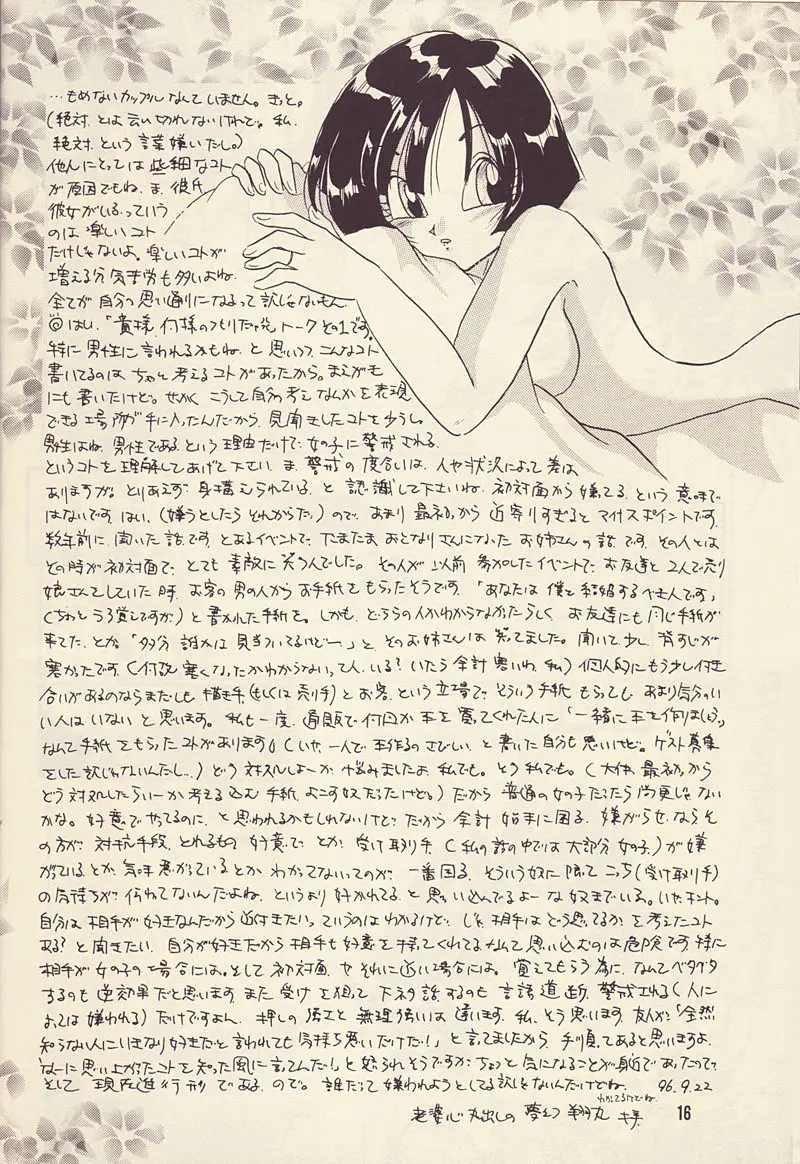 …もめないカップルなんていません。きっと。
(絶対、とは云い切れないけれど。私、
絶対、という言葉嫌いだし。)
他人にとっては些細なコト
が原因でもね、ま、彼氏
彼女がいるっていう
のは楽しいコト
だけじゃないよ。楽しいコトが
増える分気苦労も多いよね。
全てが自分の思い通りになるって訳じゃないもん。
はい、「貴様、何様のつもりだい トークその1です。
特に男性に言われるかもね、と思いつつ、こんなコト
書いてるのはちゃんと考えるコトがあったから。まえがき
にも書いたけど、せっかくこうして自分の考えなんかを表現
できる場所が手に入ったんだから、見聞きしたコトを少し。
男性はね、男性である、という理由だけで、女の子に警戒される、
というコトを理解してあげて下さい、ま、警戒の度合いは、人や状況によって差は
ありますが。とりあえず、身構えられている、と認識して下さいね、初対面から嫌ってる、という意味で
はないです、はい、(嫌うとしたらそれからだ。)ので、あまり最初から近寄りすぎるとマイナスポイントです。
数年前に聞いた話です、とあるイベントで、たまたまおとなりさんになったお姉さんの話です、その人とは
その時が初対面で、とても素敵に笑う人でした。その人が以前参加したイベントで、お友達と2人で売り
娘さんをしていた時、お客の男の人からお手紙をもらったそうです、「あなたは僕と結婚するべき人です」
(ちょっとうろ覚えですが)と書かれた手紙を。しかも、どちらの人かわからなかったらしく、お友達にも同じ手紙が
来てた、とか。「多分誰かは見当ついてるけどー」と、そのお姉さんは笑ってました。聞いて少し、背すじが
寒かったです、(何故寒くなったかわからないって人、いる?いたら余計寒いわ、私)個人的にもう少し付き
合いがあるのならまだしも、描き手(もしくは売り手)とお客、という立場で、そういう手紙もらっても、あまり気分のい
い人はいないと思います。私も一度、通販で何回か本を買ってくれた人に「一緒に本を作りましょう」
なんて手紙をもらったコトがあります。(いや、一人で本作るのさびしい、と書いた自分も悪いけど。ゲスト募集
をした訳じゃないんだし…)どう対処しよーか悩みましたよ、私でも。そう私でも。(大体、最初から
どう対処したらいーか考え込む手紙、よこす奴だったけど。)だから普通の女の子だったら尚更じゃない
かな。好意でやってるのに、と思われるかもしれないけど、だから余計始末に困る、嫌がらせならそ
の方が対抗手段、とれるもの、好意で、とか、受け取り手(私の話の中では大部分女の子。)が嫌
がっているとか、気味悪がっているとかわかってないってのが、一番困る、そういう奴に限ってこっち(受け取り手)
の気持ちが伝わってないんだよね、というより好かれてる、と思い込んでるよーな奴までいる。いや、ホント。
自分は相手が好きなんだから近付きたい、っていうのはわかるけど、じゃ、相手はどう思ってるか、を考えたコト
ある?と聞きたい、自分が好きだから相手も好意を持ってくれてるなんて思い込むのは危険です、特に
相手が女の子の場合には。そして初対面、や、それに近い場合には。覚えてもらう為に、なんてベタベタ
するのも逆効果だと思います、また受けを狙って下ネタ話するのも言語道断、警戒される(人に
よっては嫌われる)だけですよん、押しの強さと無理強いは違います、私、そう思います、友人が「全然
知らない人にいきなり好きだと言われても気持ち悪いだけだ!」と言ってましたから、手順ってあると思いますよ、
「なーに思い上がったコトを知った風に言ってんだ!」と怒られそうですが、ちょっと気になることが身近であったので、
そして現在進行形である、ので。誰だって嫌われようとしてる訳じゃないんだけどね。 96.9.22
わかってるけどね。
老婆心丸出しの 夢幻 翔丸
16